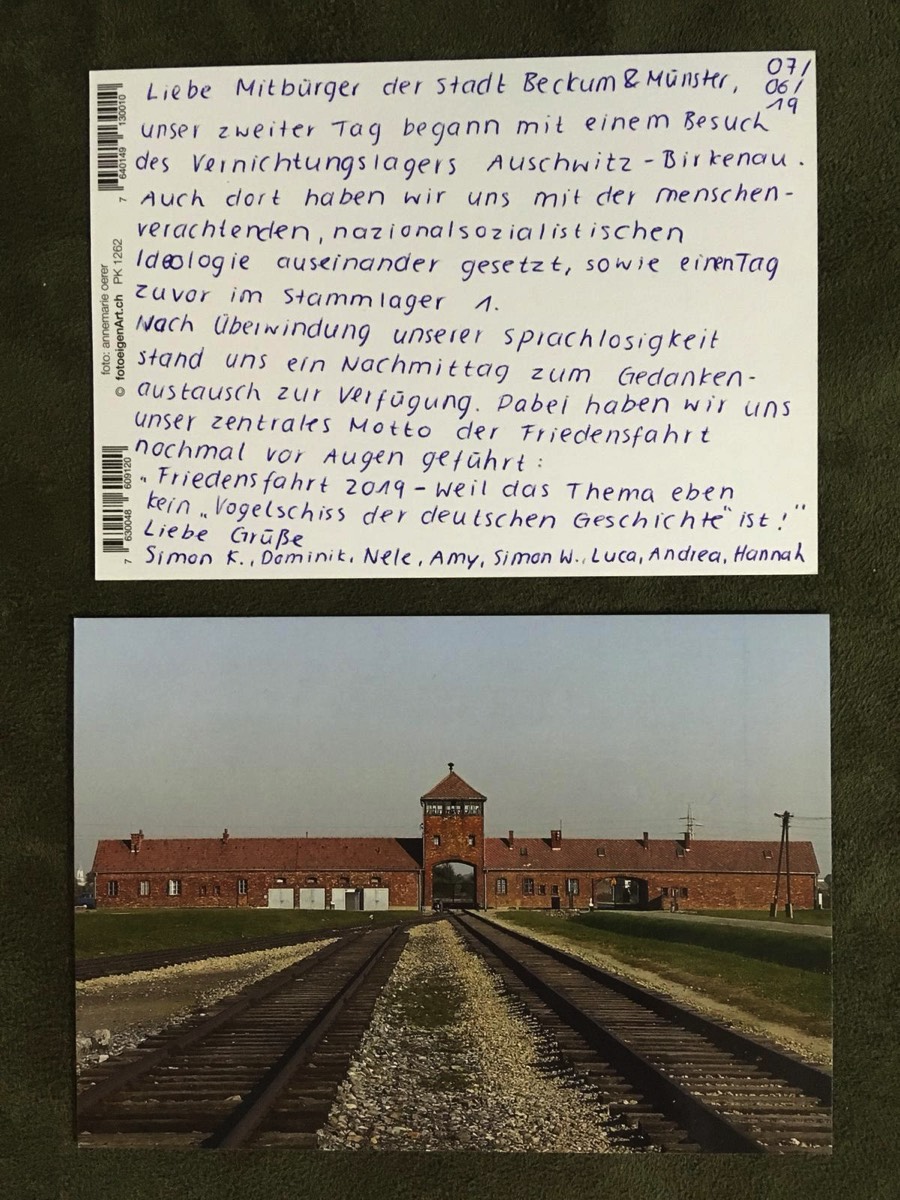 Liebe Mitbürger der Stadt Beckum & Münster,
07/
06/
19
unser zweiter Tag begann mit einem Besuch
des Vernichtungslagers Auschwitz - Birkenau.
Auch dort haben wir uns mit der menschen-
verachtenden, nazionalsozialistischen
Ideologie auseinander gesetzt, sowie einen Tag
zuvor im Stammlager 1.
Nach Überwindung unserer Sprachlosigkeit
stand uns ein Nachmittag zum Gedanken-
austausch zur Verfügung. Dabei haben wir uns
unser zentrales Motto der Friedensfahrt
nochmal vor Augen geführt:
"Friedensfahrt 2019 - Weil das Thema eben
kein „Vogelschiss der deutschen Geschichte" ist!"
Liebe Grüße
Simon K., Dominik, Nele, Amy, Simon W., Luca, Andrea, Hannah
7 640149 130010
foto: annemarie oerer
© fotoeigenArt.ch PK 1262
7 630048 609120